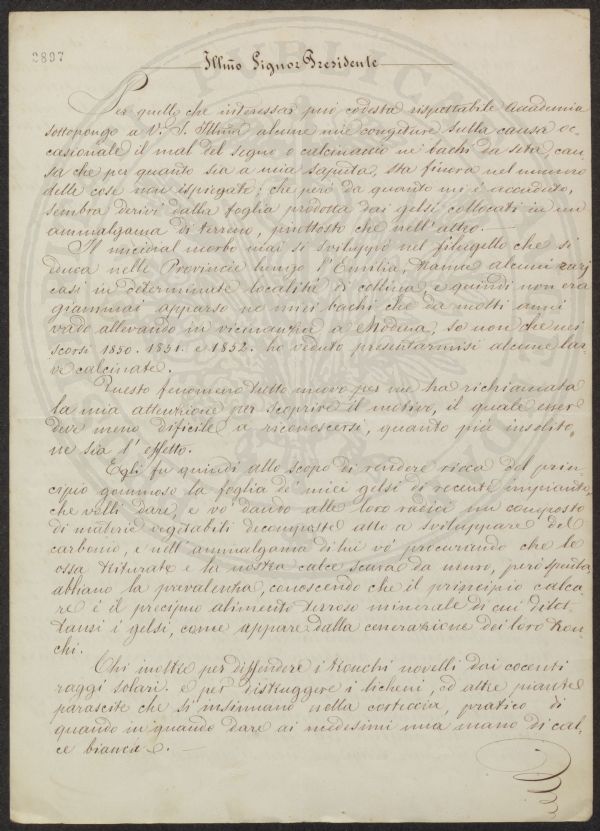 2897
Illmo Signor Presidente
Per quello che interessar può codesta rispettabile Accademia
sottopongo a V. S. Illma alcune mie congetture sulla causa oc-
casionale il mal del segno o calcinaccio ne' bachi da seta, cau-
sa che per quanto sia a mia saputa, sta finora nel numero
delle cose non ispiegate; che però da quanto mi è accaduto,
sembra derivi dalla foglia prodotta dai gelsi collocati in un
ammalgama di terreno, piuttosto che nell'altro.
Il micidial morbo mai si sviluppò nel filugello che si
educa nelle Provincie lungo l'Emilia, tranne alcuni rarj
casi in determinate località di collina, e quindi non era
giammai apparso ne' miei bachi che da molti anni
vado allevando in vicinanza a Modena, se non che nei
scorsi 1850. 1851. e 1852. ho veduto presentarmisi alcune lar-
ve calcinate.
Questo fenomeno tutto nuovo per me ha richiamata
la mia attenzione per scoprire il motivo, il quale esser
deve meno dificile a riconoscersi, quanto più insolito
ne sia l'effetto.
Egli fu quindi allo scopo di rendere ricca del prin-
cipio gommoso la foglia de' miei gelsi di recente impianto,
che volli dare, e vo' dando alle loro radici un composto
di materie vegetabili decomposte atto a sviluppare del
carbonio, e nell'ammalgama di lui vo' procurando che le
ossa triturate e la nostra calce scura da muro, però spenta
abbiano la prevalenza, conoscendo che il principio calca-
re è il precipuo alimento terroso minerale di cui
i gelsi, come appare dalla cenerazione dei loro tron-
chi.
Chi inoltre per diffendere i tronchi novelli dai cocenti
raggi solari. e per distruggere i licheni, ed altre piante
parascite che si insinuano nella corteccia, pratico di
quando in quando dare ai medesimi una mano di cal-
ce bianca.